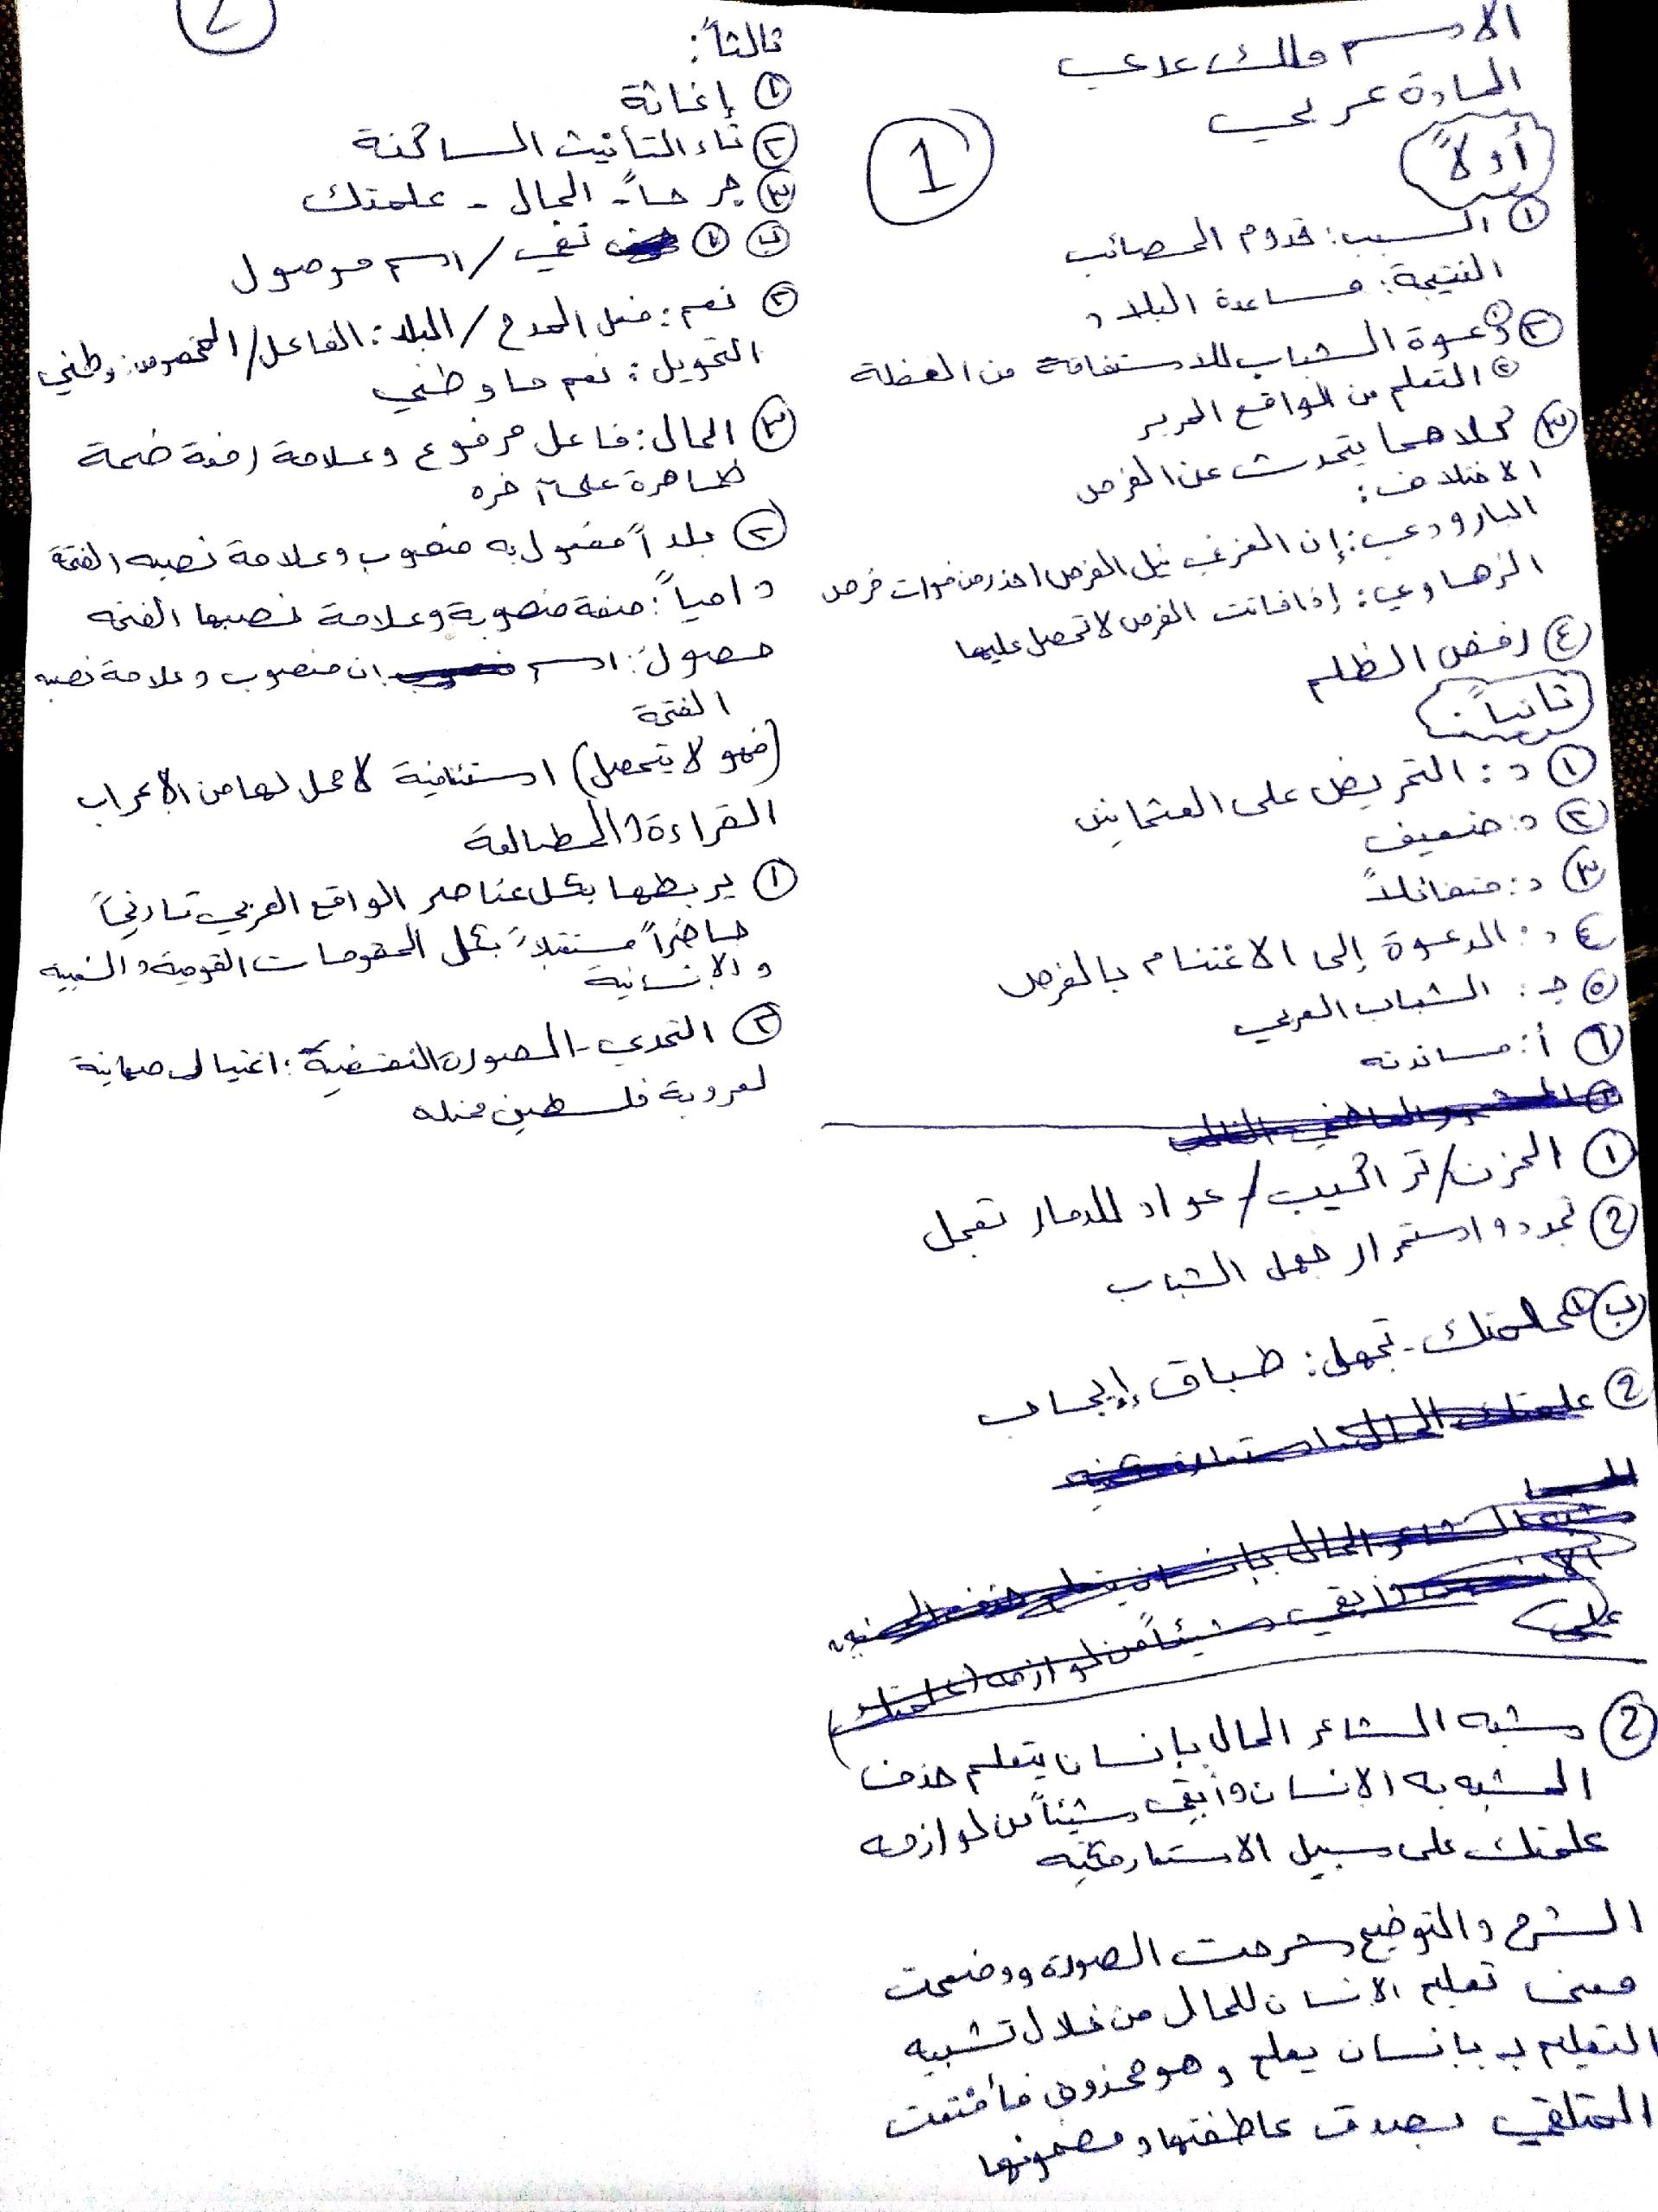 الاسم ملك علاعب
المادة عربي
1
أولاً
① السبب: قدوم المصائب
النتيجة: مساعدة البلاد
② ① دعوة الشباب للاستفاقة من الغفلة
② التعلم من الواقع المرير
③ كلاهما يتحدث عن الفرص
الاختلاف:
البارودي: إن الغرغب نيل الفرص احذر من فوات فرص
الزهاوي: إذا فاتت الفرص لا تحصل عليها
④ رفض الظلم
ثانياً:
① د: التحريض على العثمانيين
② د: ضعيف
③ د: متفائلاً
④ د: الدعوة إلى الاغتنام بالفرص
⑤ جـ: الشباب العربي
⑥ أ: مساندته
① الحزن/تراكيب/عواد للدمار تعجل
② تجدد واستمرار جهل الشباب
ب ① علمتك - تجهل: طباق إيجاب
②
② شبه الشاعر الحال بإنسان يتعلم حذف
المشبه به الإنسان وأبقى شيئاً من لوازمه
علمتك على سبيل الاستعارة مكنية
الشرح والتوضيح شرحت الصورة ووضحت
معنى تعليم الإنسان للحال من خلال تشبيه
التعليم بـ بإنسان يعلم وهو محذوف فأقنعت
المتلقي بصدق عاطفتها ومضمونها
ثالثاً:
① إغاثة
② تاء التأنيث الساكنة
③ جرحاً - الحال - علمتك
ب ① نفي / اسم موصول
② نعم: فعل المدح / البلاد: الفاعل / المخصوص: وطني
التحويل: نعم ما وطني
③ الحال: فاعل مرفوع وعلامة رفعه ضمة
ظاهرة على آخره
② بلداً مفعول به منصوب وعلامة نصبه الفتحة
دامياً: صفة منصوبة وعلامة نصبها الفتحه
حصول: اسم ان منصوب وعلامة نصبه
الفتحة
(فهو لا يتحصل) استئنافية لا محل لها من الأعراب
القراءة والمطالعة
① يربطها بكل عناصر الواقع العربي تاريخياً
حاضراً مستقبلاً بكل المقومات القومية والشعبيه
والإنسانية
② التحدي - الصورة النقيضية: اغتيال صهاينة
لعروبة فلسطين محتله